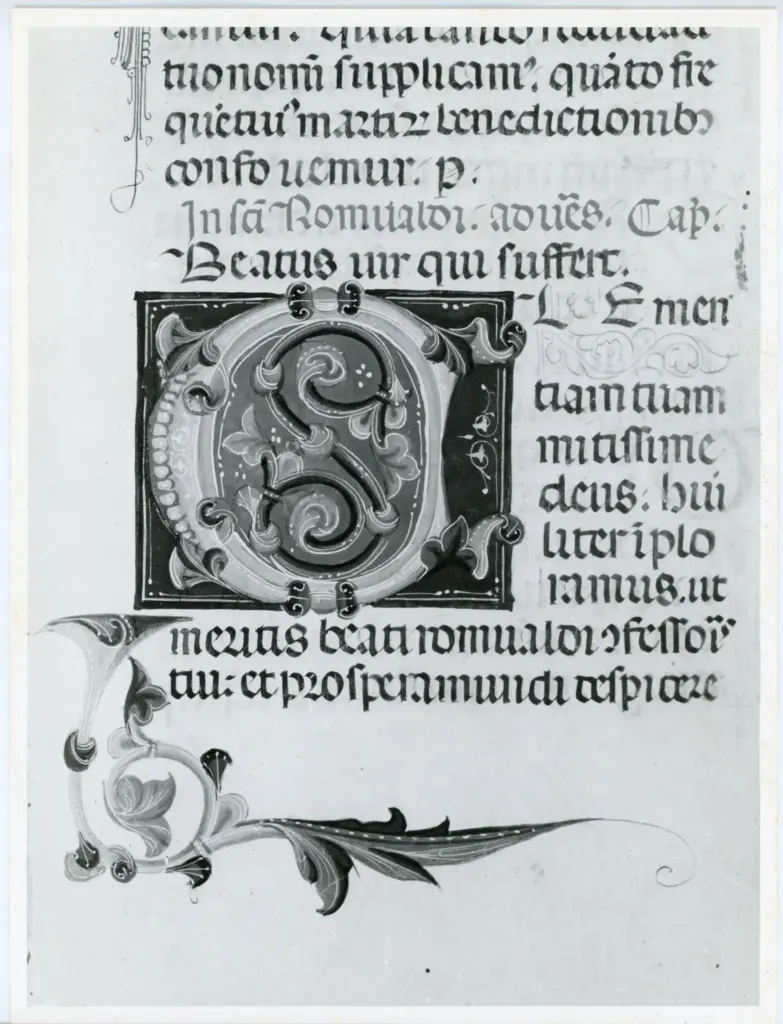 tuo nomi supplicam⁹. quāto fre
quētiu⁹ martirꝝ benedictionibꝫ
confovemur. p.
In scī Romualdi. ad uēs. Cap.
Beatus uir qui suffert.
C LEmen
tiam tuam
mitissime
deus. hui
liter īplo
ramus. ut
meritis beati romualdi ↄfessor̄
tui: et prospera mundi despicere